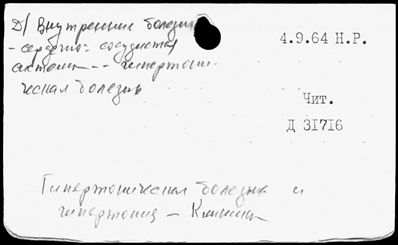 Д/ Внутренние болезни
- сердечно-сосудистая
система -- гипертони-
ческая болезнь
4.9.64 Н.Р.
Чит.
Д 31716
Гипертоническая болезнь и
гипертония - Клиника